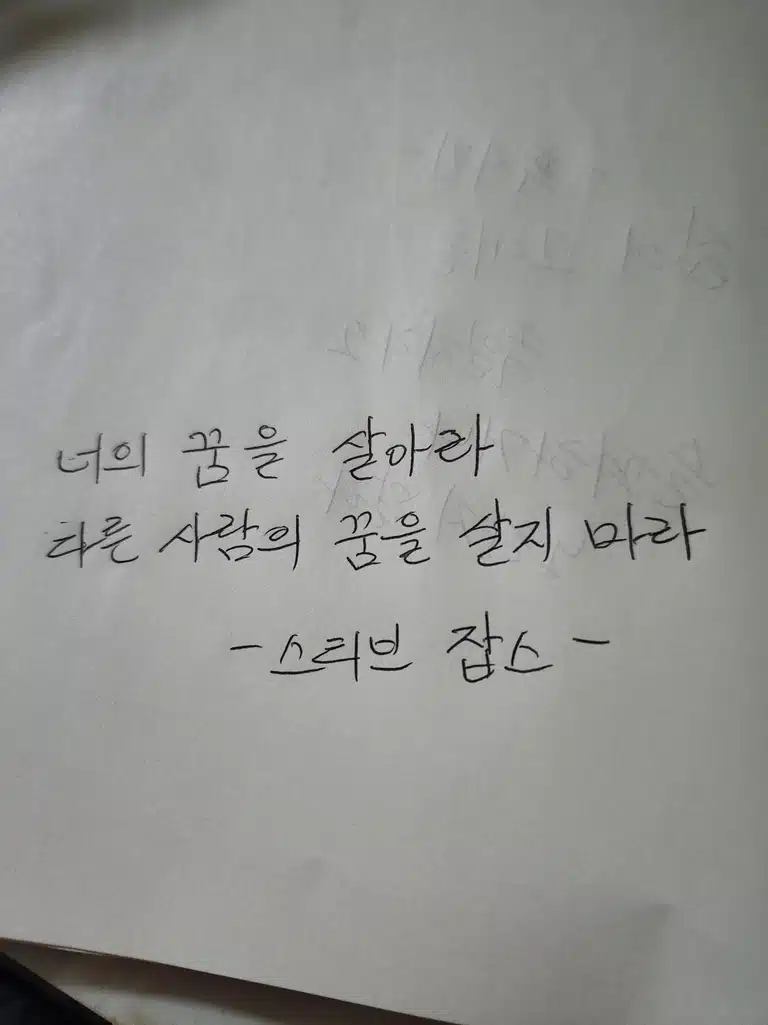 너의 꿈을 살아라
다른 사람의 꿈을 살지 마라
- 스티브 잡스 -